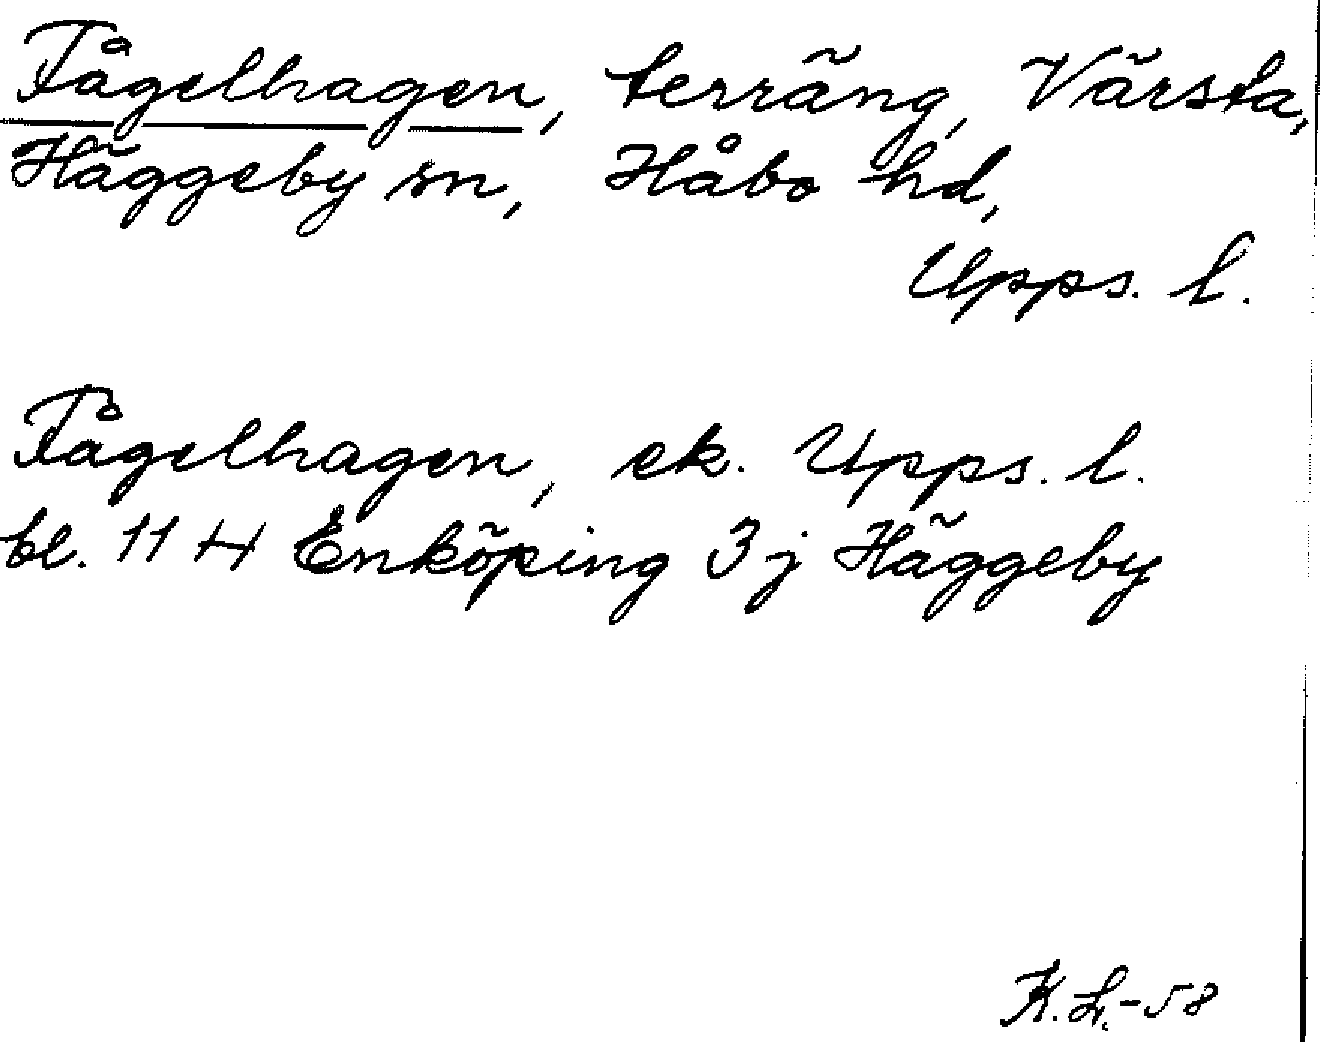 Fågelhagen, terräng, Värsta,
Häggeby sn, Håbo hd,
Upps. l.
Fågelhagen, ek. Upps. l.
bl. 11 H Enköping 3 j Häggeby
K. L. -58